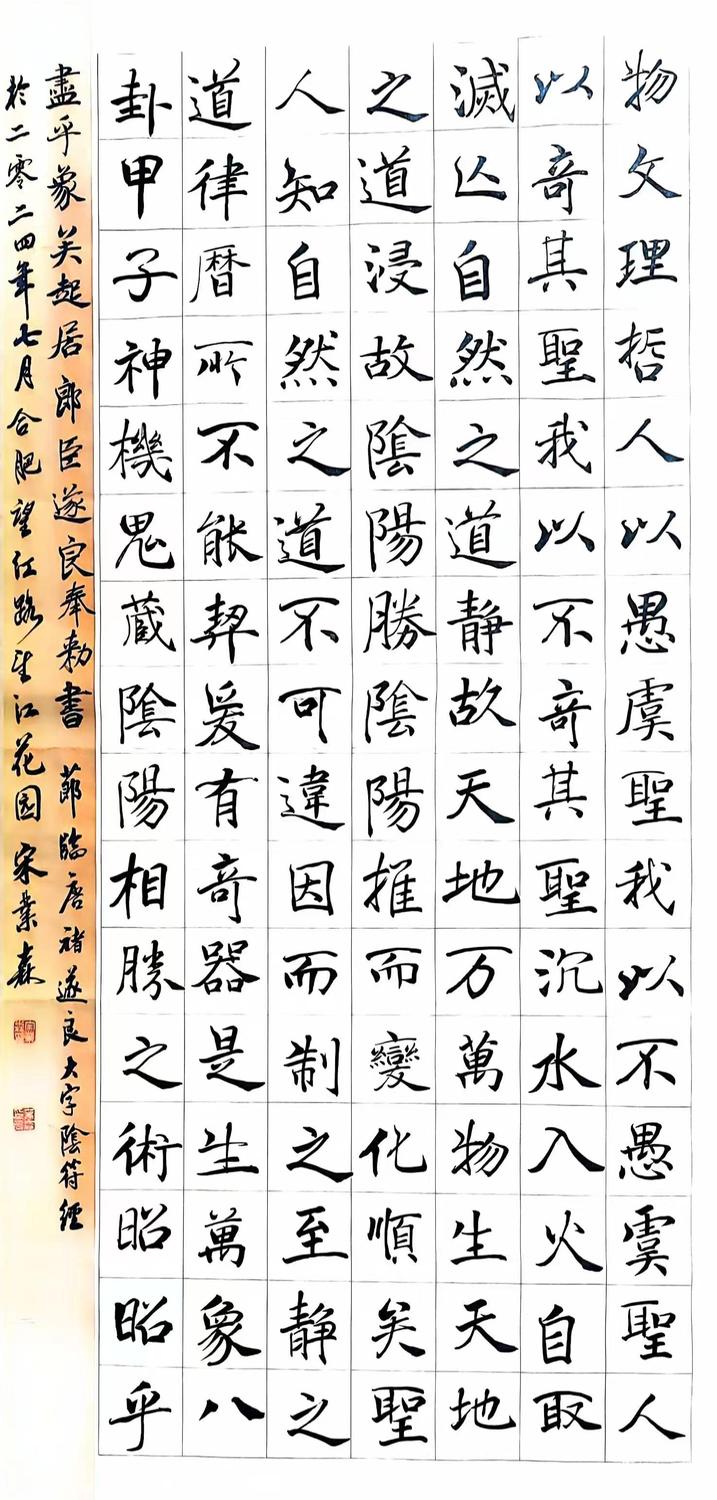 物文理哲人以愚虞聖我以不愚虞聖人
以奇其聖我以不奇其聖沉水入火自取
滅亾自然之道静故天地万萬物生天地
之道浸故陰陽勝陰陽推而變化順矣聖
人知自然之道不可違因而制之至静之
道律曆所不能契爰有奇器是生萬象八
卦甲子神機鬼蔵陰陽相勝之術昭昭乎
盡乎象矣起居郎臣遂良奉勅書 節臨唐褚遂良大字陰符經
於二零二四年七月合肥望江路望江花园宋業森